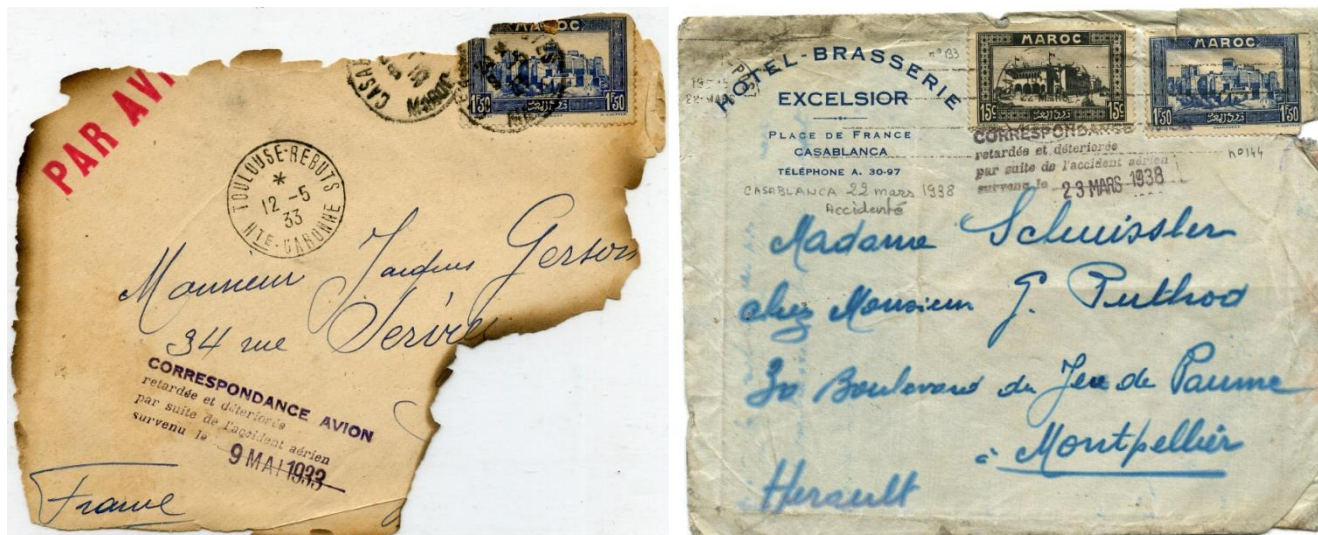 PAR AVI
MAROC
1F50 1F50
TOULOUSE-REBUTS
*
12 -5
33
HTE-GARONNE
Monsieur Jacques Gerson
34 rue Servie
CORRESPONDANCE AVION
retardée et déteriorée
par suite de l'accident aérien
survenu le 9 MAI 1933
France
HOTEL-BRASSERIE
EXCELSIOR
PLACE DE FRANCE
CASABLANCA
TÉLÉPHONE A. 30-97
CASABLANCA 22 mars 1938
Accidenté
n° 133
MAROC
15c 15c
MAROC
1F50 1F50
n° 144
CORRESPONDANCE
retardée et déteriorée
par suite de l'accident aérien
survenu le 23 MARS 1938
Madame Schuissler
chez Monsieur G. Puthod
30 Boulevard du Jeu de Paume
à Montpellier
Herault